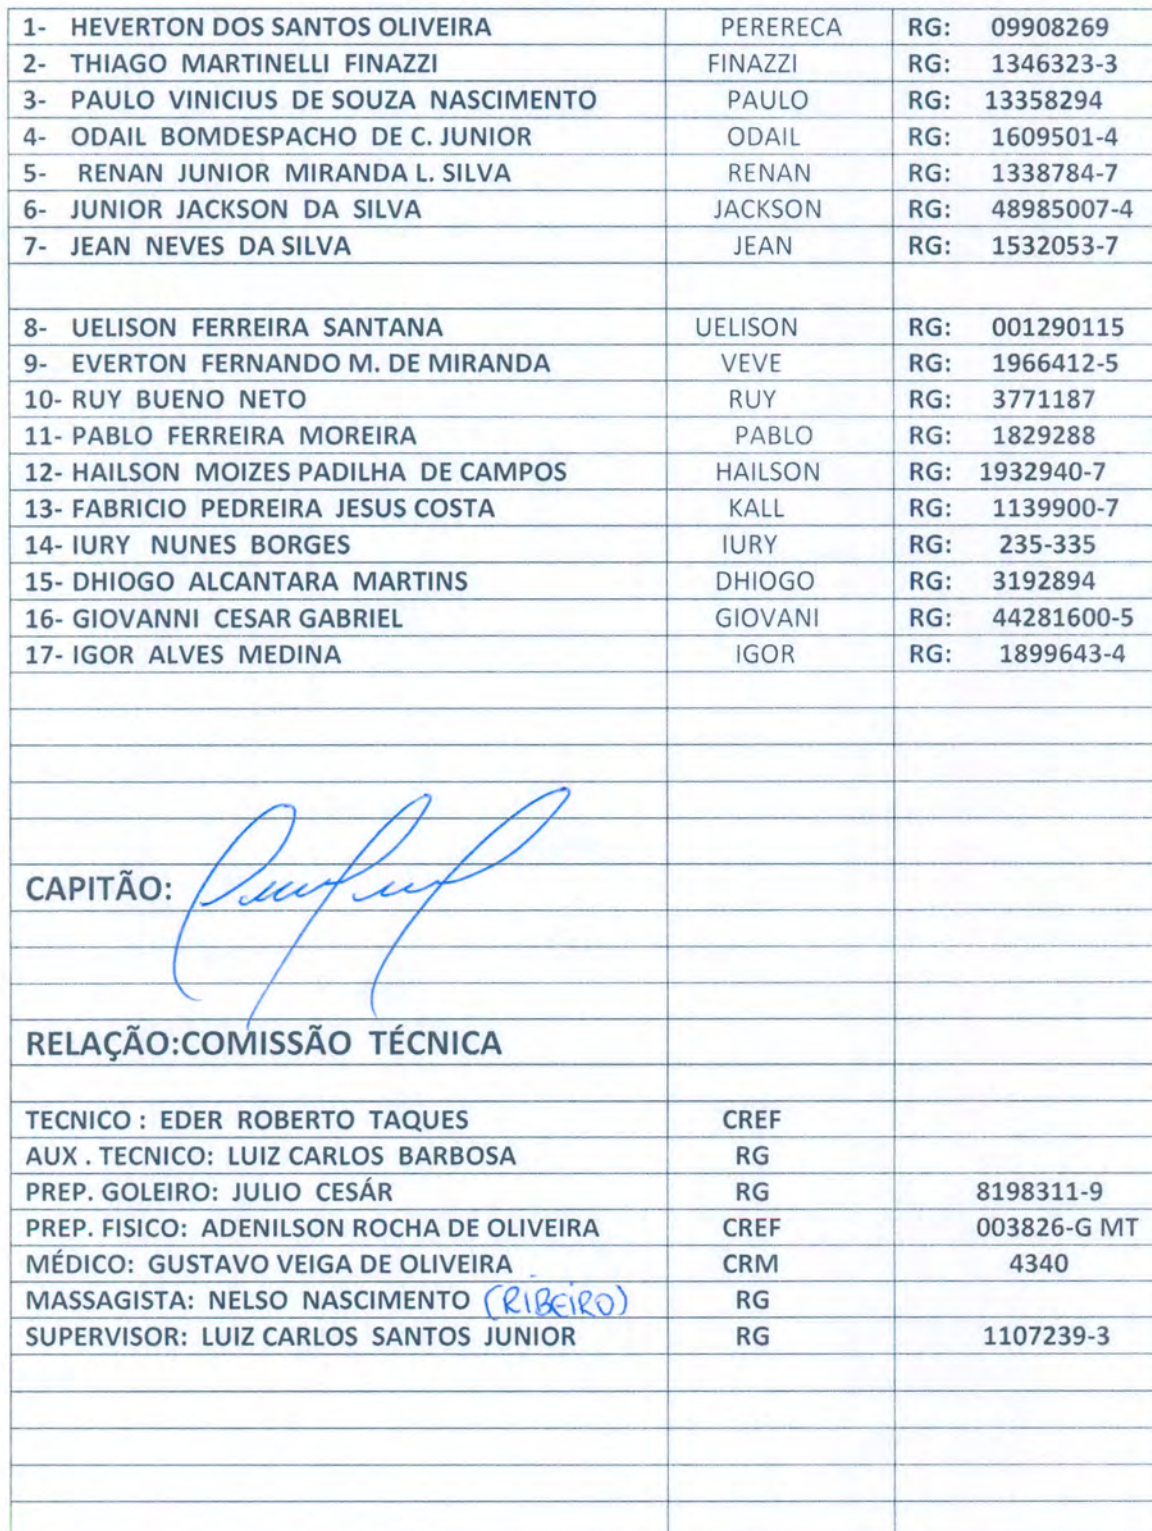 1- HEVERTON DOS SANTOS OLIVEIRA PERERECA RG: 09908269
2- THIAGO MARTINELLI FINAZZI FINAZZI RG: 1346323-3
3- PAULO VINICIUS DE SOUZA NASCIMENTO PAULO RG: 13358294
4- ODAIL BOMDESPACHO DE C. JUNIOR ODAIL RG: 1609501-4
5- RENAN JUNIOR MIRANDA L. SILVA RENAN RG: 1338784-7
6- JUNIOR JACKSON DA SILVA JACKSON RG: 48985007-4
7- JEAN NEVES DA SILVA JEAN RG: 1532053-7
8- UELISON FERREIRA SANTANA UELISON RG: 001290115
9- EVERTON FERNANDO M. DE MIRANDA VEVE RG: 1966412-5
10- RUY BUENO NETO RUY RG: 3771187
11- PABLO FERREIRA MOREIRA PABLO RG: 1829288
12- HAILSON MOIZES PADILHA DE CAMPOS HAILSON RG: 1932940-7
13- FABRICIO PEDREIRA JESUS COSTA KALL RG: 1139900-7
14- IURY NUNES BORGES IURY RG: 235-335
15- DHIOGO ALCANTARA MARTINS DHIOGO RG: 3192894
16- GIOVANNI CESAR GABRIEL GIOVANI RG: 44281600-5
17- IGOR ALVES MEDINA IGOR RG: 1899643-4
CAPITÃO:
RELAÇÃO:COMISSÃO TÉCNICA
TECNICO : EDER ROBERTO TAQUES CREF
AUX . TECNICO: LUIZ CARLOS BARBOSA RG
PREP. GOLEIRO: JULIO CESÁR RG 8198311-9
PREP. FISICO: ADENILSON ROCHA DE OLIVEIRA CREF 003826-G MT
MÉDICO: GUSTAVO VEIGA DE OLIVEIRA CRM 4340
MASSAGISTA: NELSO NASCIMENTO (RIBEIRO) RG
SUPERVISOR: LUIZ CARLOS SANTOS JUNIOR RG 1107239-3